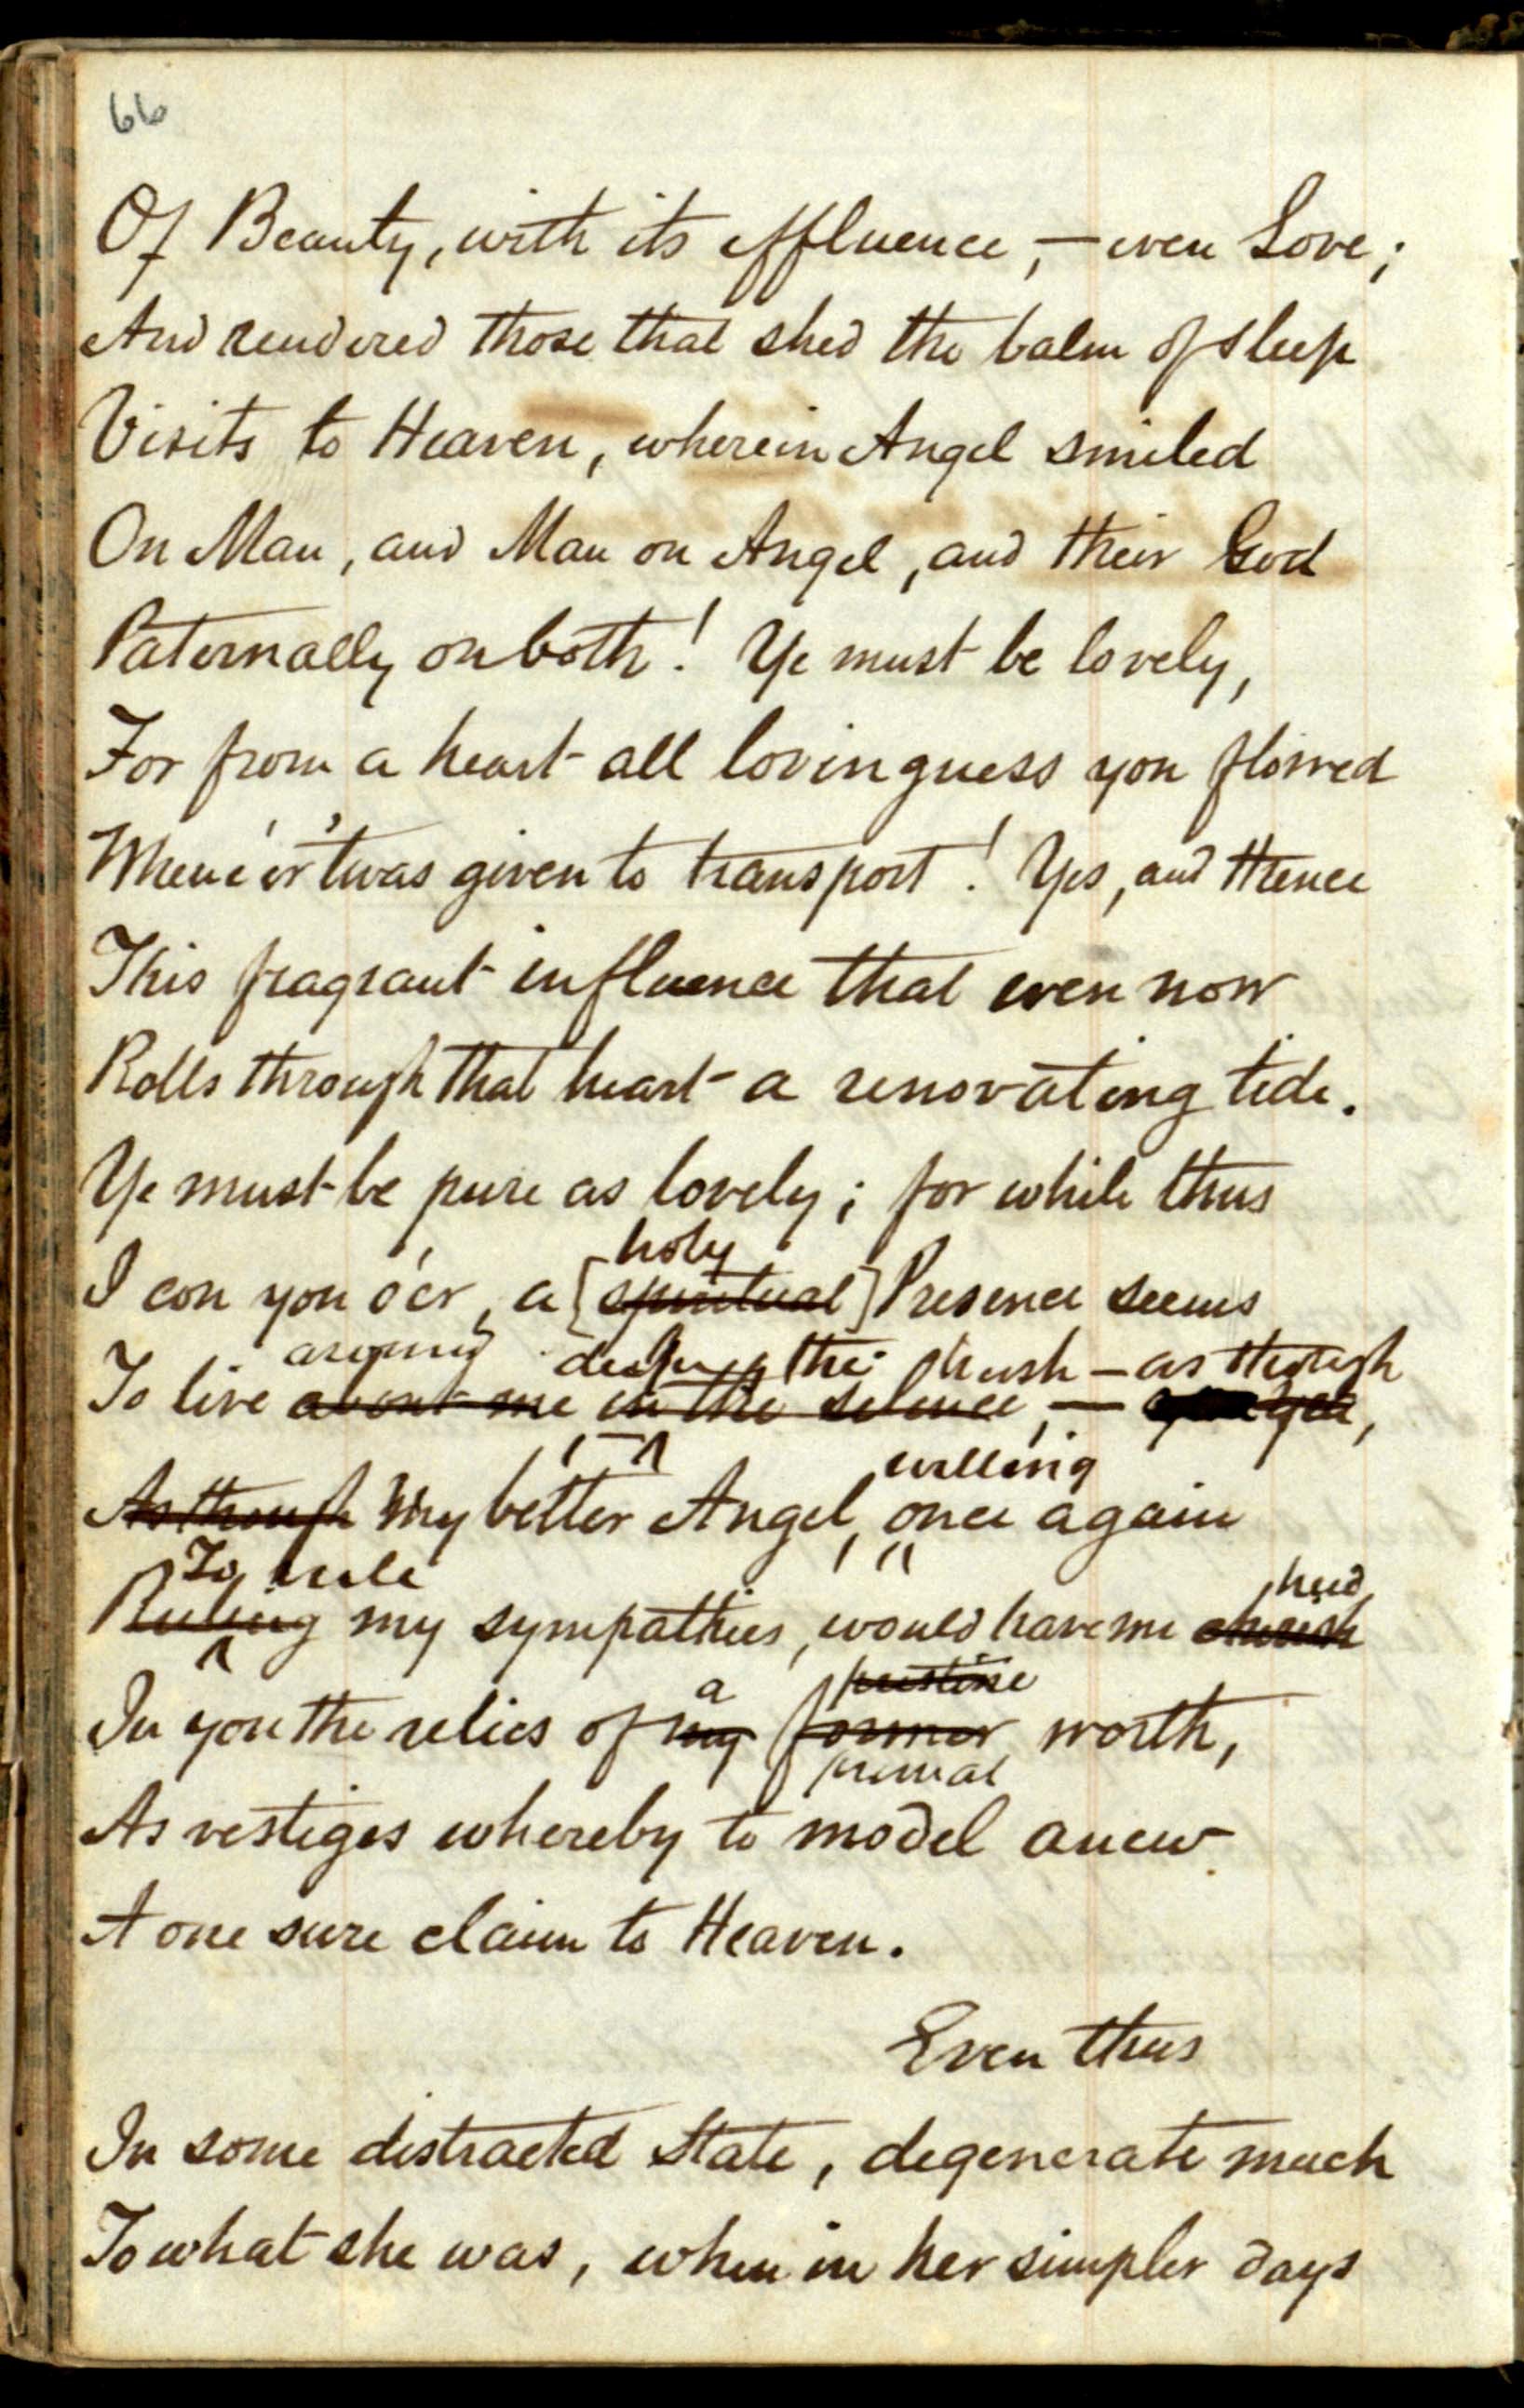 66
Of Beauty, with its effluence, — even Love;
And rendered those that shed the balm of sleep
Visits to Heaven, wherein Angel smiled
On Man, and Man on Angel, and their God
Paternally on both! Ye must be lovely,
For from a heart all lovingness you flowed
Whene'er 'twas given to transport! Yes, and thence
This fragrant influence that even now
Rolls through that heart a renovating tide.
Ye must be pure as lovely; for while thus
holy
I con you o'er, a [spiritual] Presence seems
around deep in the hush — as though
To live about me in the silence, — yea,
willing
As though My better Angel, once again
To rule heed
Ruling my sympathies, would have me cherish
a pristine
In you the relics of my former worth,
primal
As vestiges whereby to model anew
A one sure claim to Heaven.
Even thus
In some distracted State, degenerate much
To what she was, when in her simpler days